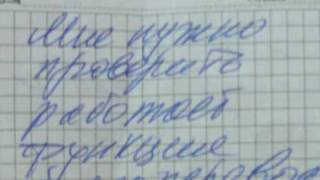 Мне нужно
проверить
работает
функцию